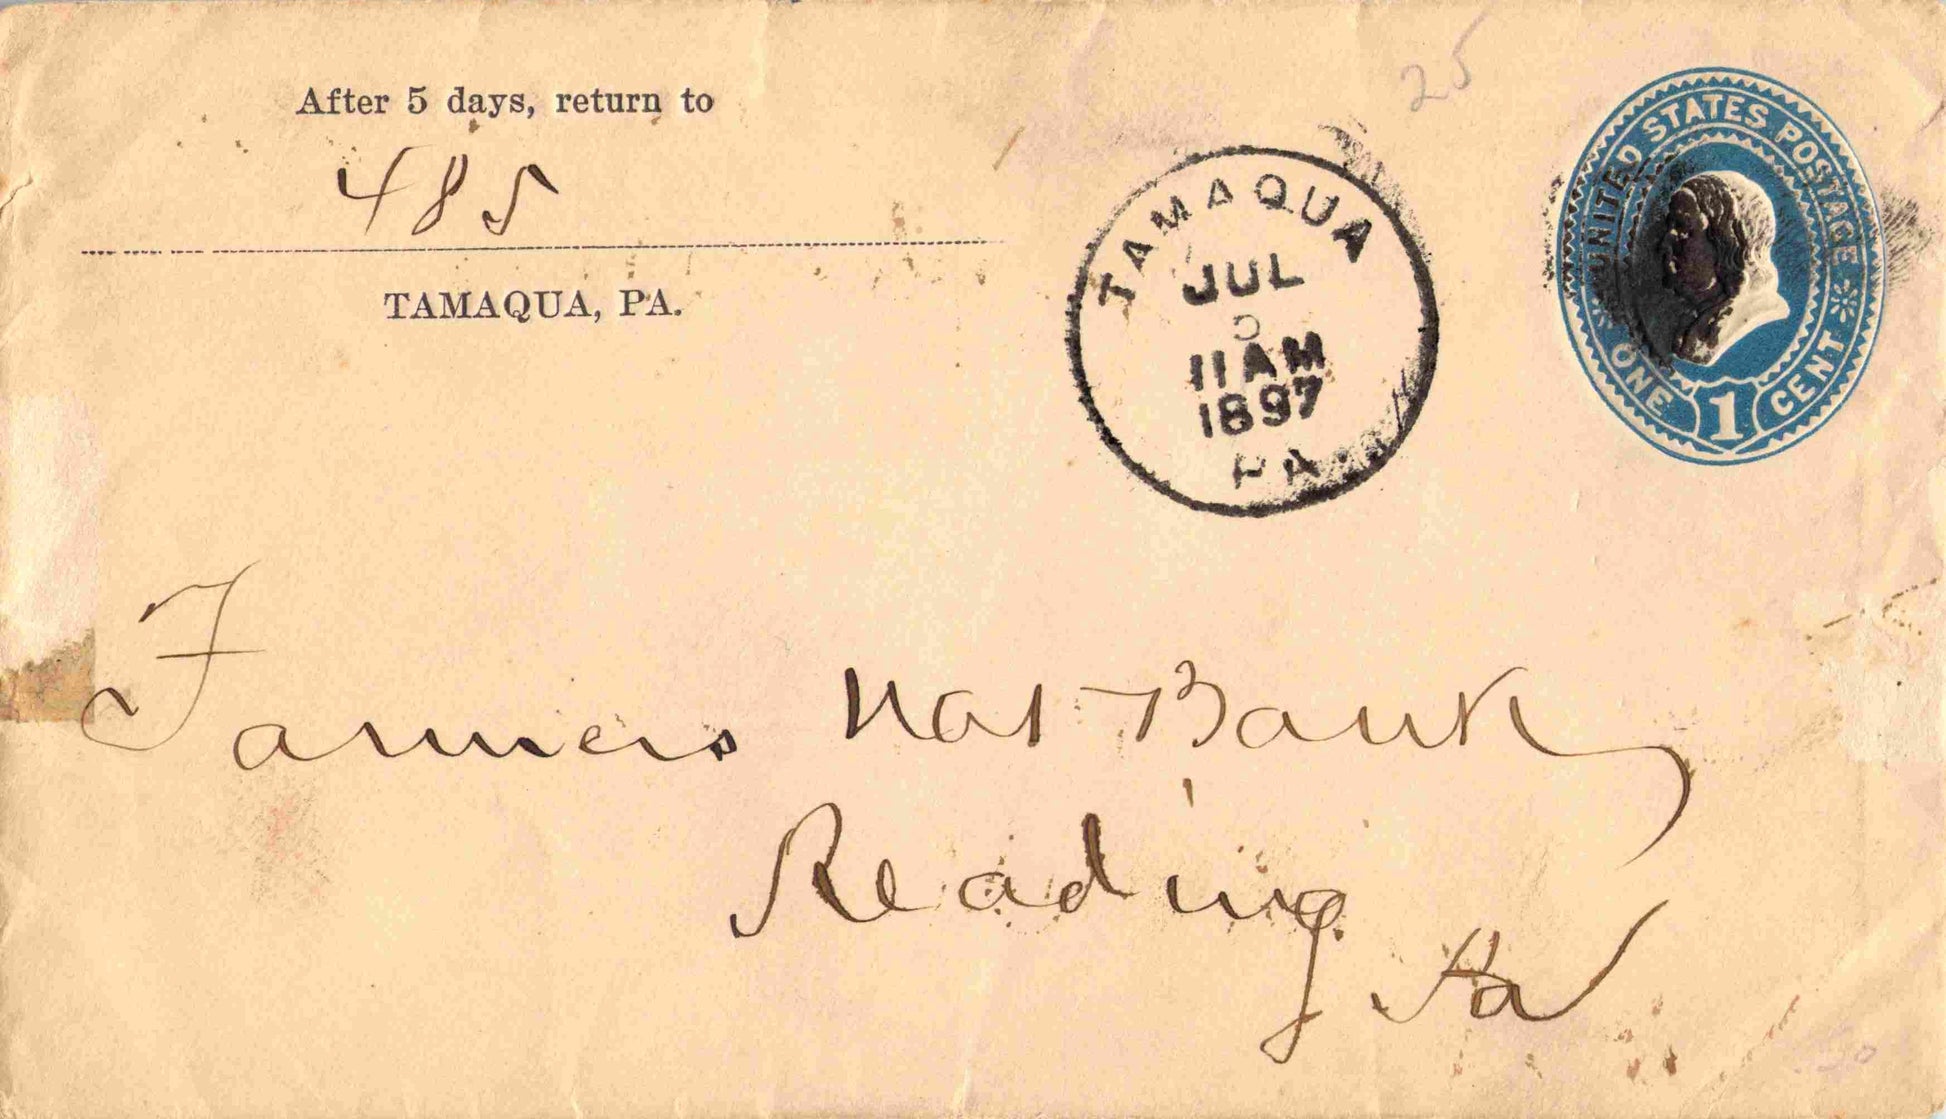 After 5 days, return to
485
TAMAQUA, PA.
25
TAMAQUA
JUL
11 AM
1897
PA.
UNITED STATES POSTAGE
ONE 1 CENT
Farmers Nat Bank
Reading
Pa